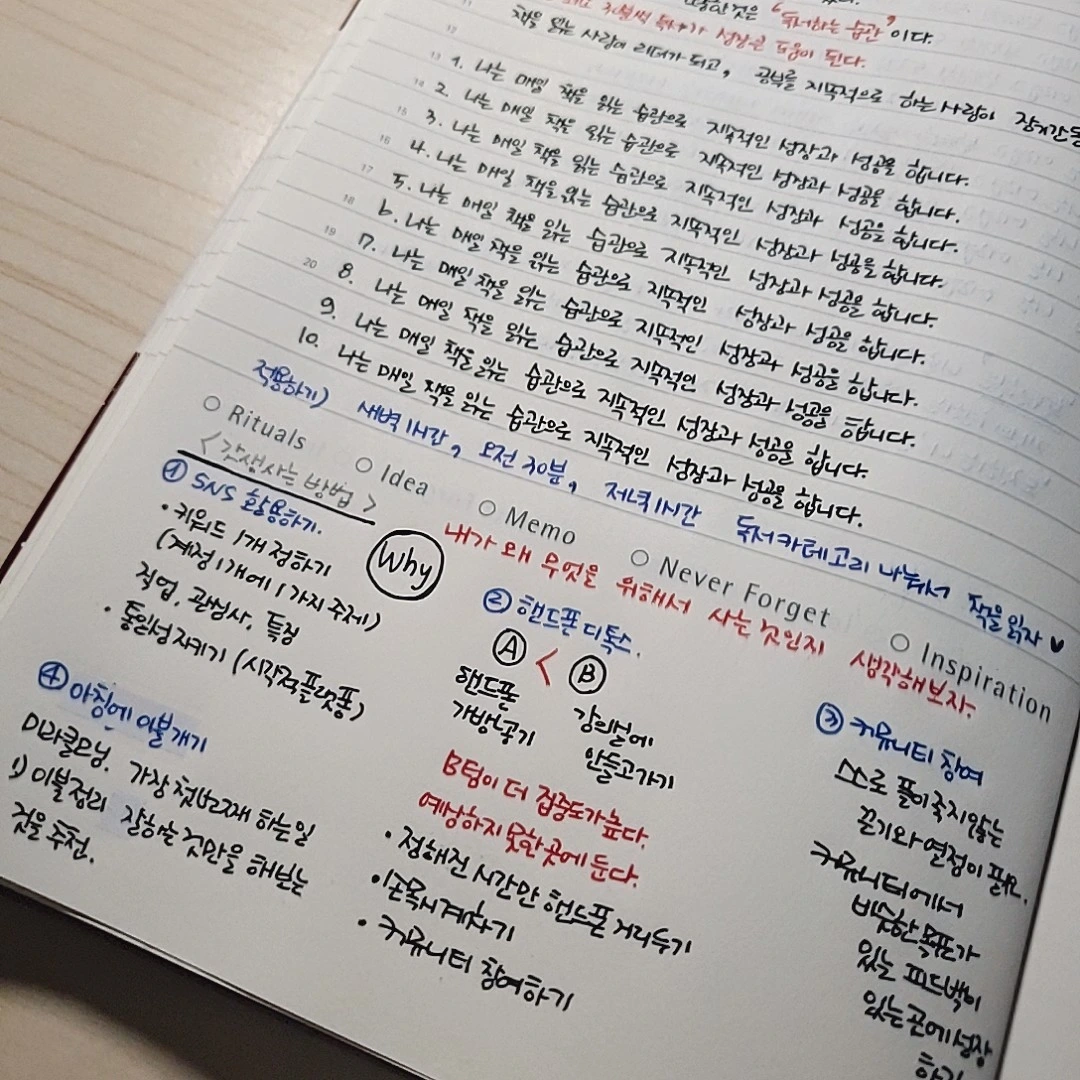 것은 "독서하는 습관"이다.
30분씩 독서가 성장을 도움이 된다.
책을 읽는 사람이 리더가 되고, 공부를 지속적으로 하는 사람이
13 1. 나는 매일 책을 읽는 습관으로 지속적인 성장과 성공을 합니다.
14 2. 나는 매일 책을 읽는 습관으로 지속적인 성장과 성공을 합니다.
15 3. 나는 매일 책을 읽는 습관으로 지속적인 성장과 성공을 합니다.
16 4. 나는 매일 책을 읽는 습관으로 지속적인 성장과 성공을 합니다.
17 5. 나는 매일 책을 읽는 습관으로 지속적인 성장과 성공을 합니다.
18 6. 나는 매일 책을 읽는 습관으로 지속적인 성장과 성공을 합니다.
19 7. 나는 매일 책을 읽는 습관으로 지속적인 성장과 성공을 합니다.
20 8. 나는 매일 책을 읽는 습관으로 지속적인 성장과 성공을 합니다.
9. 나는 매일 책을 읽는 습관으로 지속적인 성장과 성공을 합니다.
10. 나는 매일 책을 읽는 습관으로 지속적인 성장과 성공을 합니다.
적용하기) 새벽 1시간, 오전 30분, 저녁 1시간 독서 카테고리 나눠서 책을 읽자 ♥
○ Rituals ○ Idea ○ Memo ○ Never Forget ○ Inspiration
<갓생사는 방법>
Why 내가 왜 무엇을 위해서 사는 것인지 생각해보자.
① SNS 활용하기.
• 키워드 1개 정하기
(계정 1개에 1가지 주제)
직업, 관심사, 특징
• 통일성 지키기 (시각적 플랫폼)
② 핸드폰 디톡스.
Ⓐ < Ⓑ
핸드폰
가방넣기
강의실에
안들고가기
B팀이 더 집중도가 높다.
예상하지 못한 곳에 둔다.
• 정해진 시간만 핸드폰 거리두기
• 손목시계차기
• 커뮤니티 참여하기
③ 커뮤니티 참여
스스로 풀이 죽지않는
끈기와 열정이 필요.
커뮤니티에서
비슷한 목표가
있는 피드백이
있는 곳에 성장
하기
④ 아침에 이불개기
미라클모닝. 가장 첫번째 하는 일
1) 이불정리 잘하는 것만을 해보는
것을 추천.